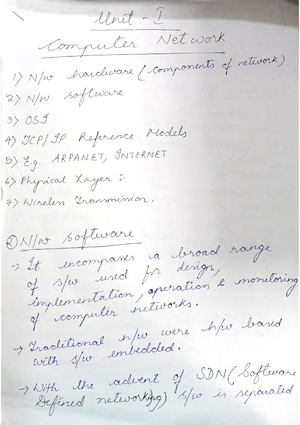 Unit - I
Computer Network
1) N/w hardware (components of network)
2) N/w software
3) OSI
4) TCP/IP Reference Models
5) E.g. ARPANET, INTERNET
6) Physical Layer :-
7) Wireless Transmission.
② N/w software
→ It encompasses a broad range
of s/w used for design,
implementation, operation & monitoring
of computer networks.
→ Traditional n/w were h/w based
with s/w embedded.
→ With the advent of SDN (Software
Defined networking) s/w is separated